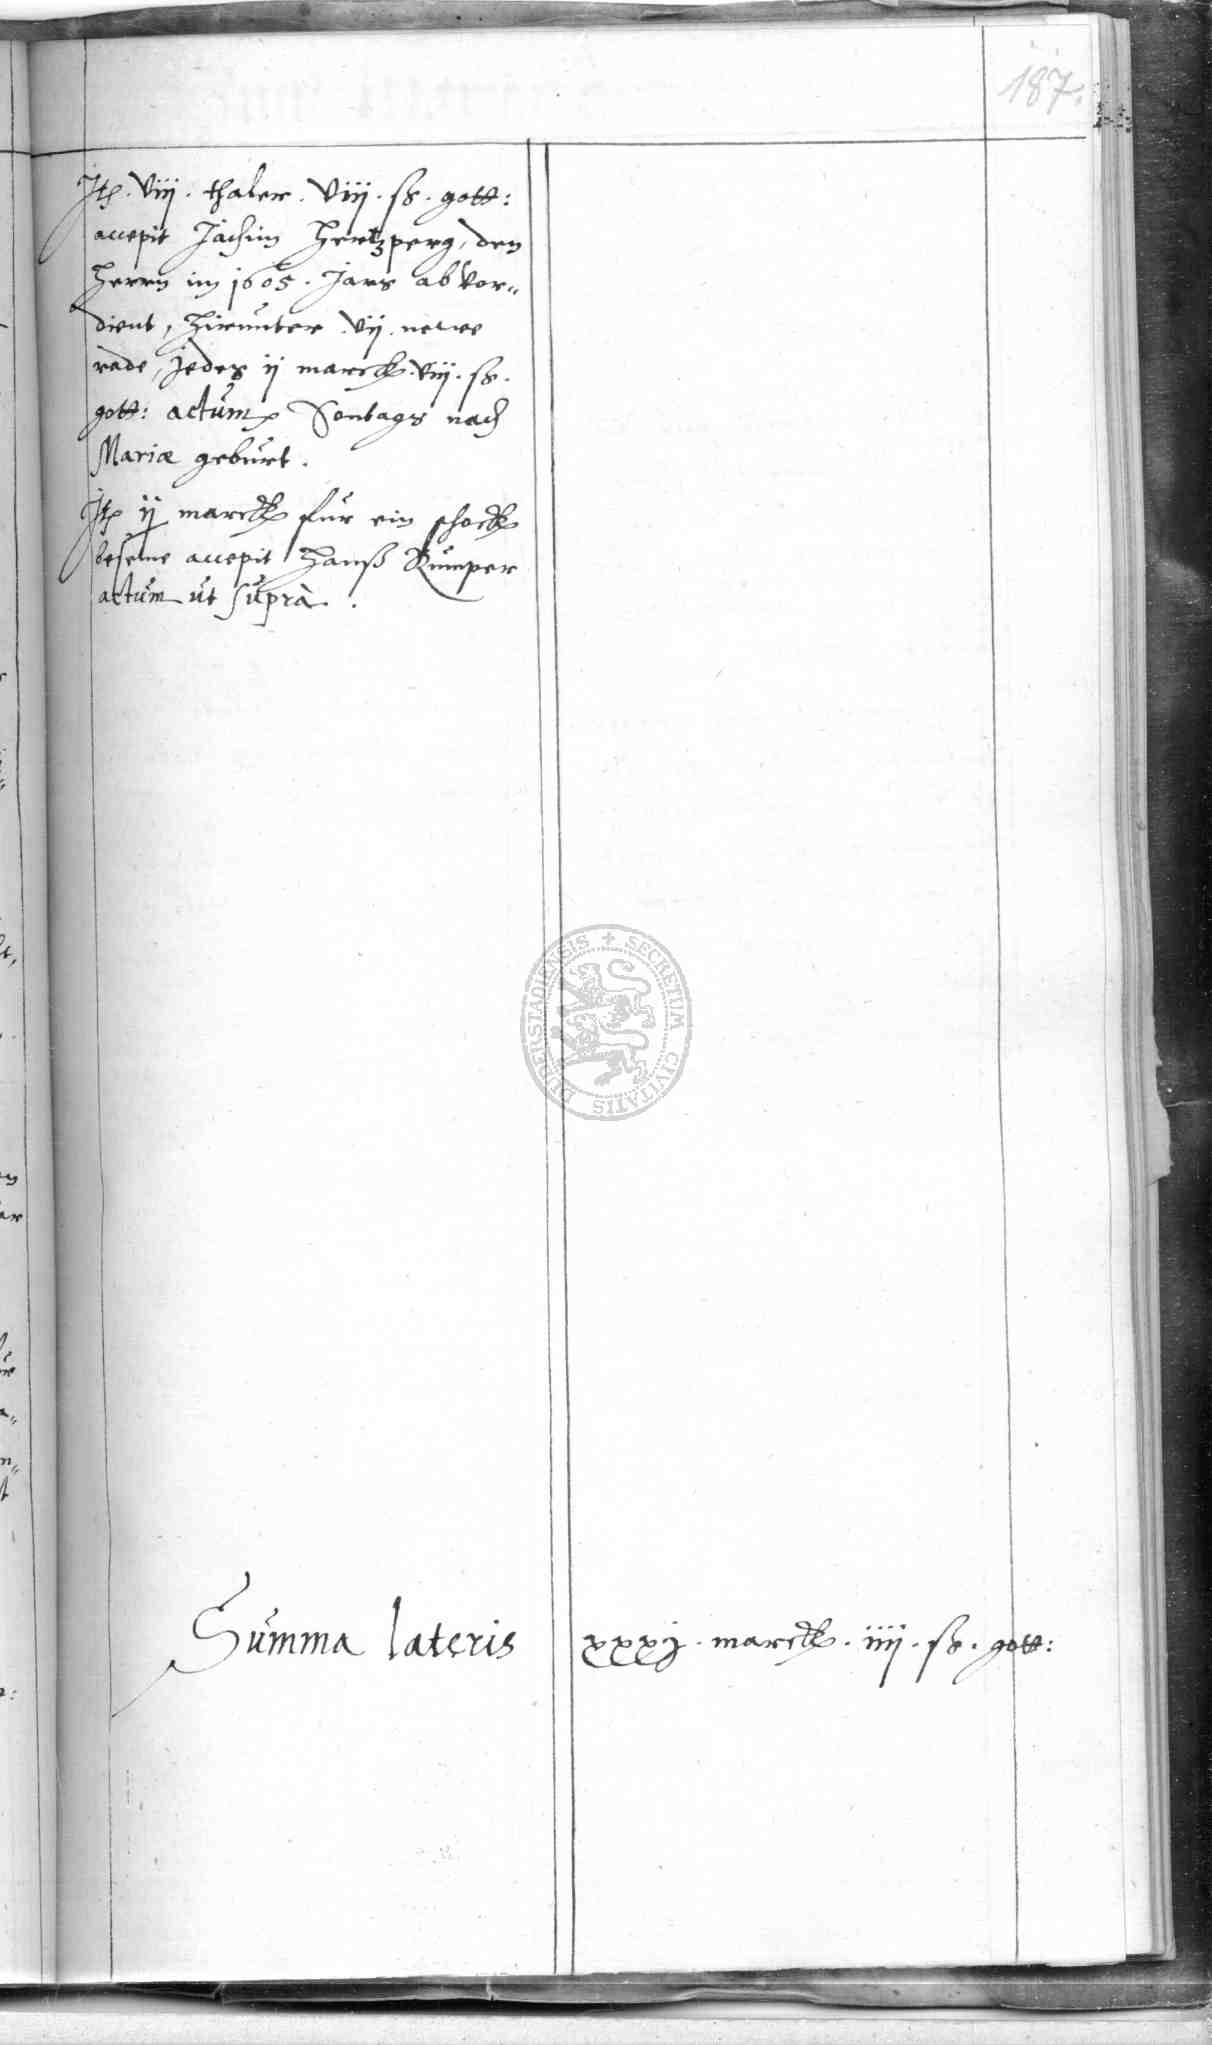 187.
Jtē. viij. thaler. viij. ß. gott:
accepit Jachim Hertzperg, den
Herrn im 1605. Jars ab vor„
dient, hirunter vij newe
rade, jedes ij marck. viij. ß.
gott: actum Sontags nach
Mariæ geburt.
Jtē ij marck für ein schock
beseme accepit Hanß Kumper
actum ut suprà.
DUDERSTADIENSIS + SECRETUM CIVITATIS
Summa lateris xxxj. marck. iiij. ß. gott: